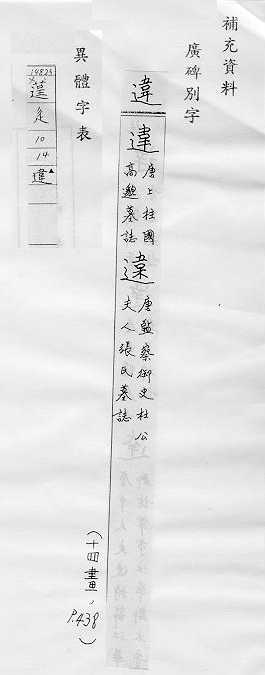 補充資料
廣碑別字
違
違 唐上柱國
高邈墓誌
違 唐監察御史杜公
夫人張氏墓誌
（十四畫，P.438）
異體字表
辵
10
14